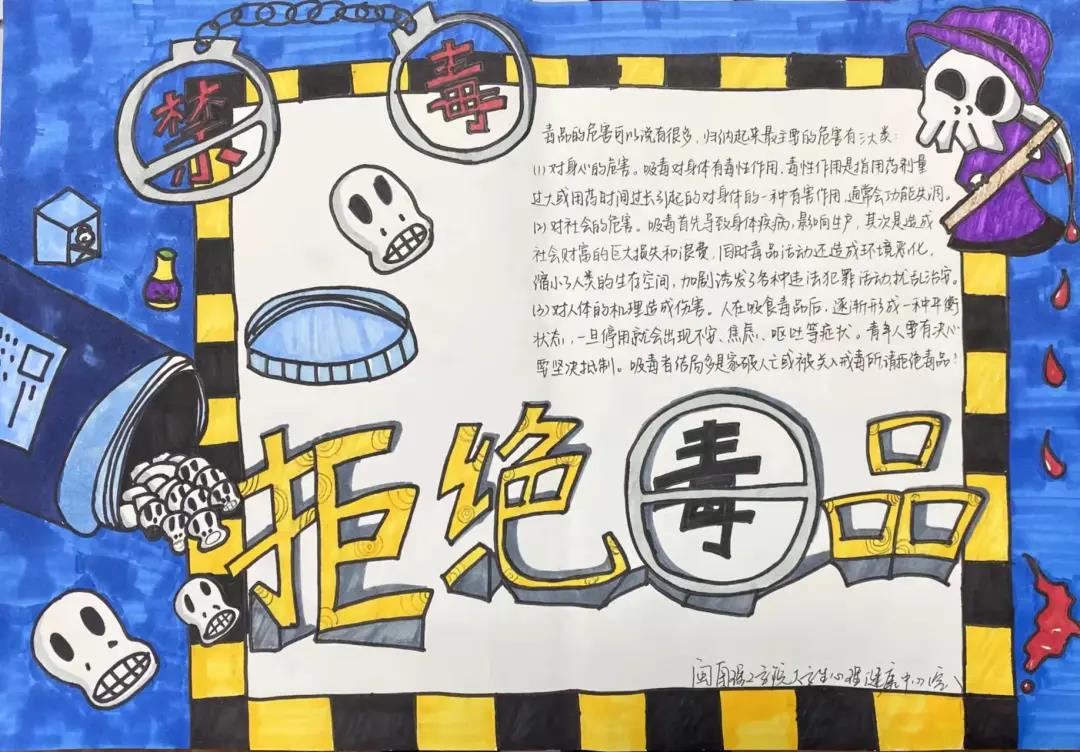 禁 毒
毒品的危害可以说有很多，归纳起来最主要的危害有三大类：
(1)对身心的危害。吸毒对身体有毒性作用，毒性作用是指用药剂量
过大或用药时间过长引起的对身体的一种有害作用，通常会功能失调。
(2)对社会的危害。吸毒首先导致身体疾病，影响生产，其次是造成
社会财富的巨大损失和浪费，同时毒品活动还造成环境恶化，
缩小了人类的生存空间，加剧诱发了各种违法犯罪活动，扰乱治安。
(3)对人体的机理造成伤害。人在吸食毒品后，逐渐形成一种平衡
状态，一旦停用就会出现不安、焦虑、呕吐等症状。青年人要有决心
要坚决抵制。吸毒者结局多是家破人亡或被关入戒毒所，请拒绝毒品！
拒绝毒品
闽南理工学院大学生心理健康中心